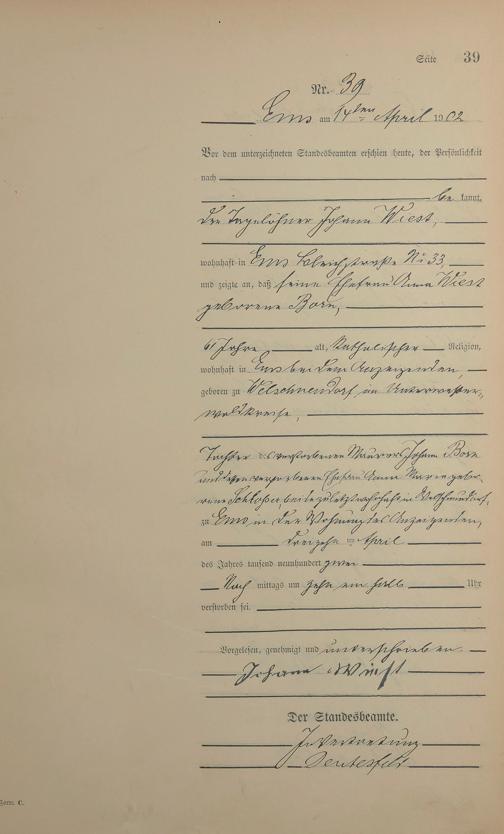 Seite 39
Nr. 39
Ems am 14ten April 1902
Vor dem unterzeichneten Standesbeamten erschien heute, der Persönlichkeit
nach
be kannt,
der Tagelöhner Johann Wiest,
wohnhaft in Ems Bleichstraße No 33,
und zeigte an, daß seine Ehefrau Anna Wiest
geborene Born,
Jahre alt, Katholischer Religion,
wohnhaft in Ems bei dem Anzeigenden,
geboren zu Welschneudorf im Unterwester-
waldkreise,
Tochter des verstorbenen Maurers Johann Born
und dessen verstorbenen Ehefrau Anna Maria gebo-
rene beide zuletzt wohnhaft in Welschneudorf,
zu Ems in der Wohnung des Anzeigenden,
am dreizehn = April
des Jahres tausend neunhundert zwei
Nach mittags um zehn ein halb Uhr
verstorben sei.
Vorgelesen, genehmigt und unterschrieben
Johann Wiest
Der Standesbeamte.
In Vertretung
Form. C.